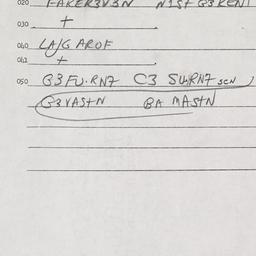 020 FAKER3V3N N1St G3RENT
030 +
040 LA/G AROF
042 +
050 G3FU.RN7 C3 SURN7 SCN )
G3VAStN BA MAStN